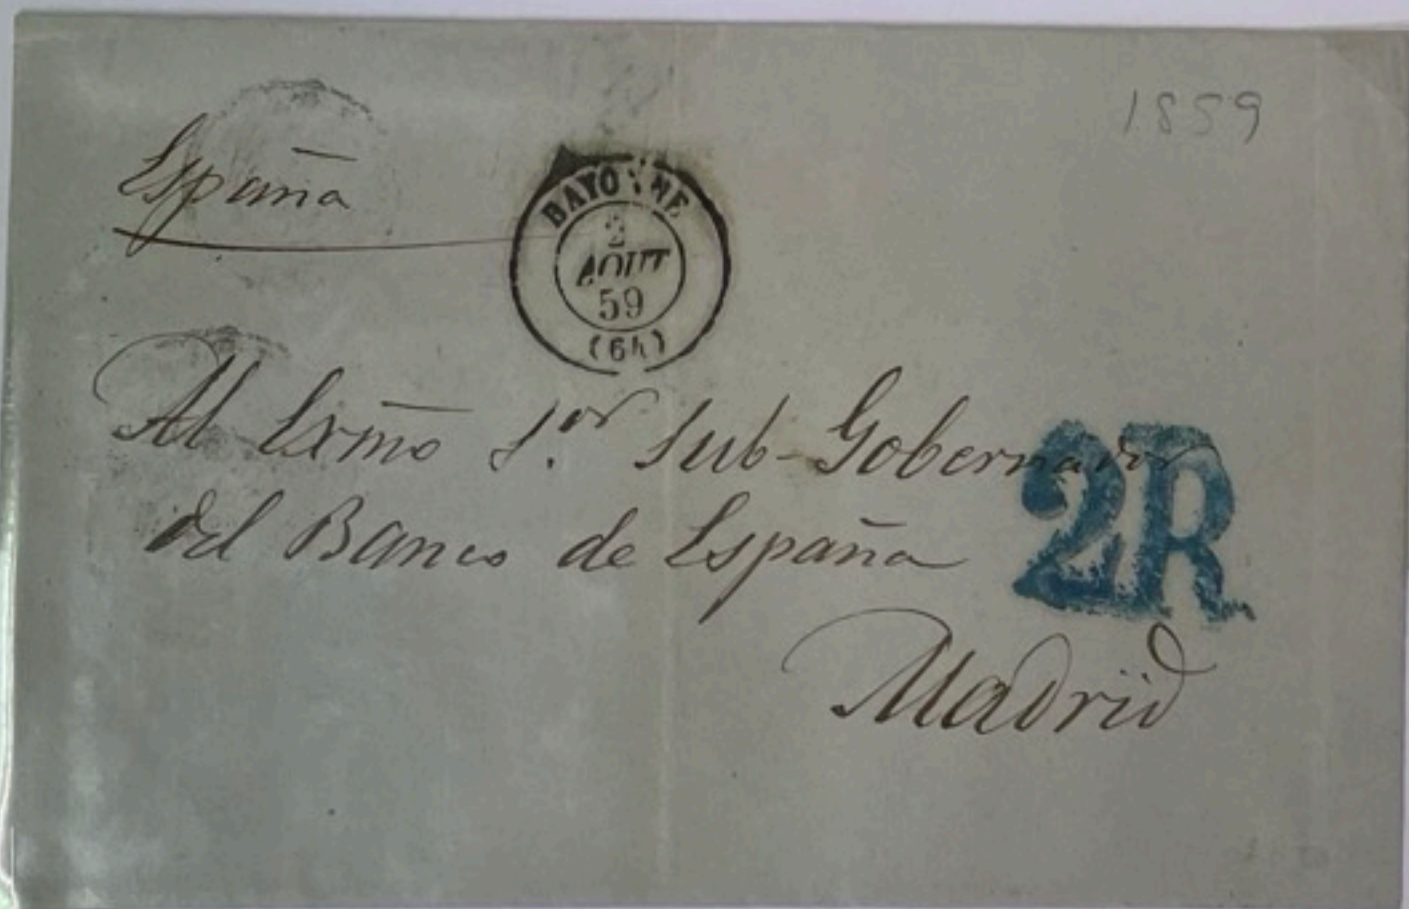 1859
España
BAYONNE
2
AOUT
59
(64)
Al Exmo S.or Sub-Gobernador
del Banco de España
2R
Madrid